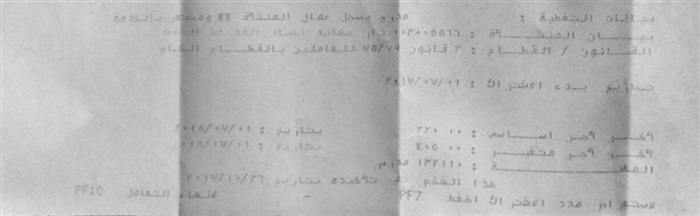 بيانات التغطية : مدرج بسجل عمال المنشاة ٨٨ ومستمر بالخدمة
بيان المنشأة :
القانون / القطاع : ٣ قانون ٧٥/٧٩ للعاملين بالقطاع
تاريخ بدء الاشتراك : ٢٠١٧/٠٧/٠١
اخر اجر اساسي : ٢٢٠.٠٠ بتاريخ : ٢٠١٨/٠٧/٠١
اخر اجر متغير : ٤٠٥.٠٠ بتاريخ : ٢٠١٨/٠٧/٠١
المهنة : ١٣٢١١٠ مدرس
هذا المؤمن تم تاكيده بتاريخ ٢٠١٧/١٠/٢٦
لاستعراض مدد الاشتراك اضغط PF7 - لانهاء التعامل PF10